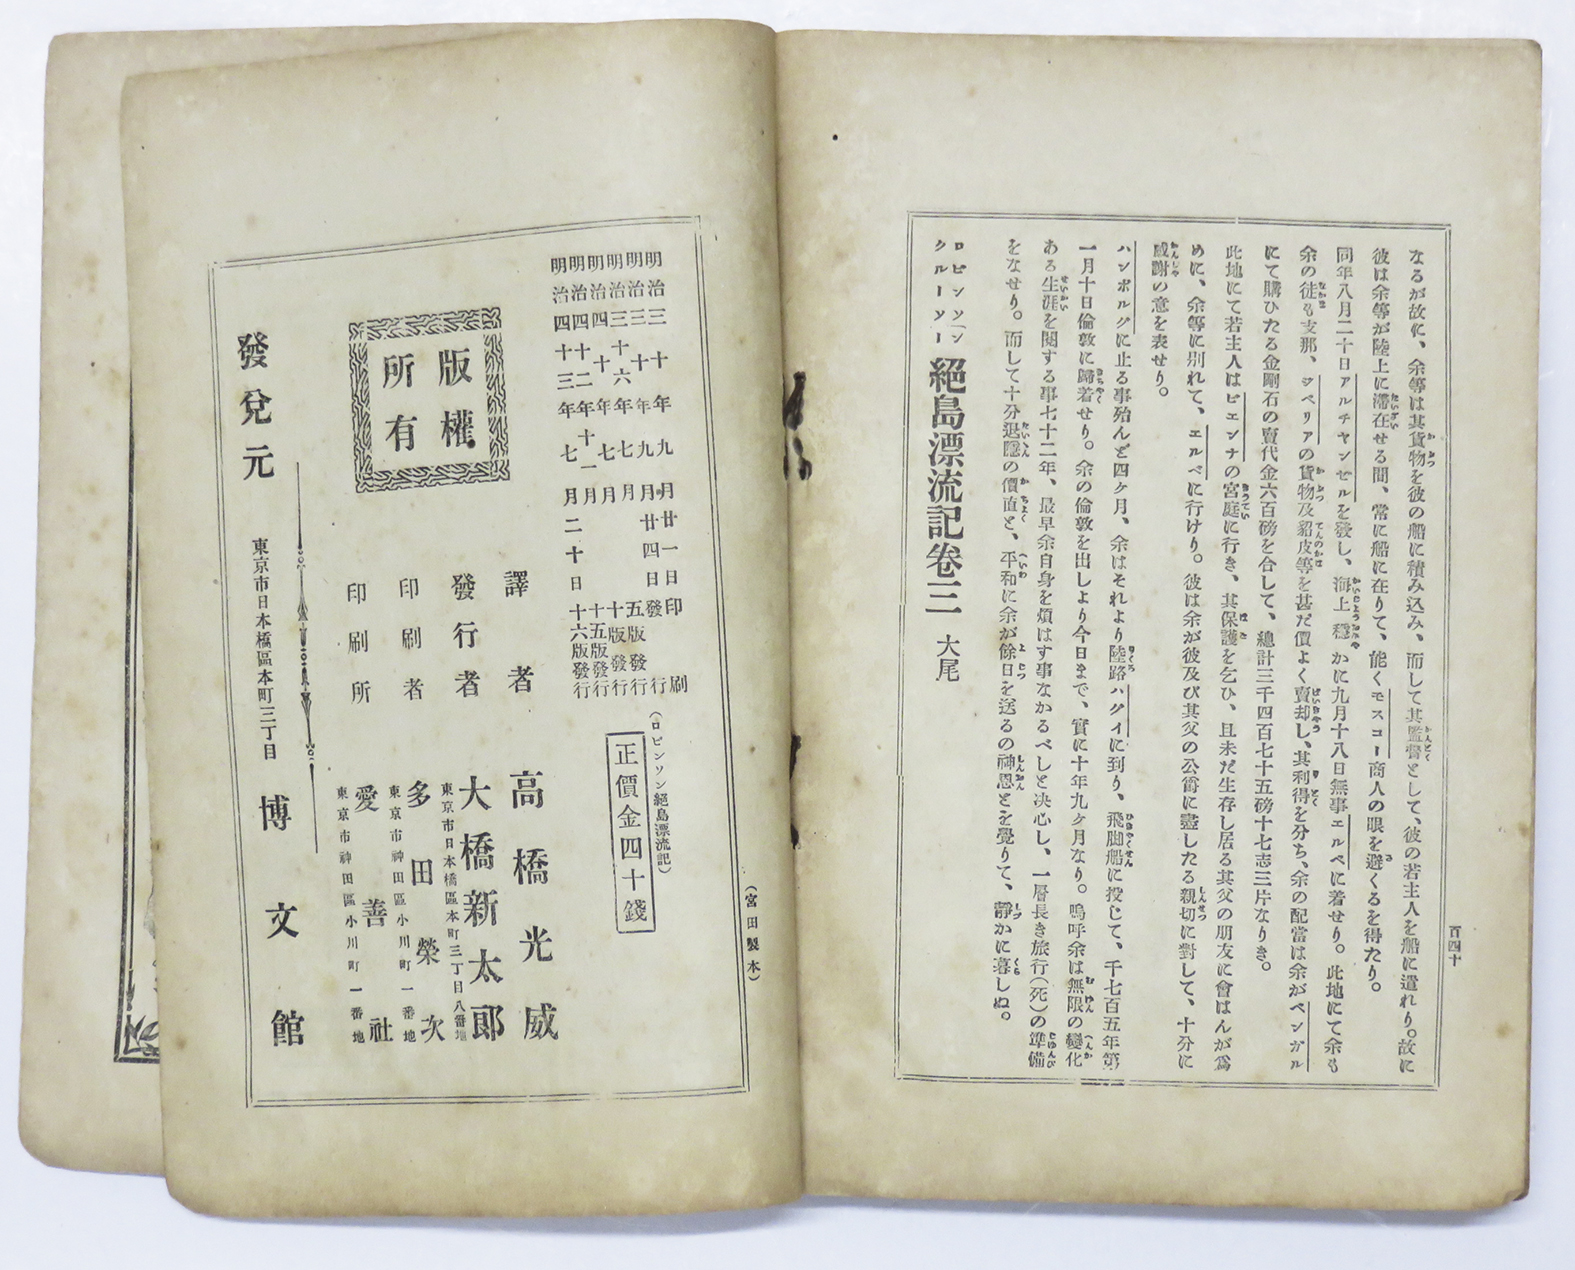 百四十
なるが故に、余等は其貨物を彼の船に積み込み、而して其監督として、彼の若主人を船に遣れり。故に
彼は余等が陸上に滯在せる間、常に船に在りて、能くモスコー商人の眼を避くるを得たり。
同年八月二十日アルチヤンゼルを發し、海上穩かに九月十八日無事エルベに着せり。此地にて余も
余の徒も支那、シベリアの貨物及貂皮等を甚だ價よく賣却し、其利得を分ち、余の配當は余がベンガル
にて購ひたる金剛石の賣代金六百磅を合して、總計三千四百七十五磅十七志三片なりき。
此地にて若主人はビエンナの宮庭に行き、其保護を乞ひ、且未だ生存し居る其父の朋友に會はんが爲
めに、余等に別れて、エルベに行けり。彼は余が彼及び其父の公爵に盡したる親切に對して、十分に
感謝の意を表せり。
ハンボルグに止る事殆んど四ケ月、余はそれより陸路ハグイに到り、飛脚船に投じて、千七百五年第
一月十日倫敦に歸着せり。余の倫敦を出しより今日まで、實に十年九ケ月なり。嗚呼余は無限の變化
ある生涯を閲する事七十二年、最早余自身を煩はす事なかるべしと决心し、一層長き旅行(死)の準備
をなせり。而して十分退隱の價直と、平和に余が餘日を送るの神恩とを覺りて、靜かに暮しぬ。
ロビンソン
クルーソー
絕島漂流記卷三 大尾
(宮田製本)
明治三十年九月廿一日印刷
明治三十年九月廿四日發行
明治三十六年七月 五版發行
明治四十年七月 十版發行
明治四十二年十一月 十五版發行
明治四十三年七月二十日 十六版發行
(ロビンソン絕島漂流記)
正價金四十錢
版權
所有
譯者 高橋光威
發行者 大橋新太郎
東京市日本橋區本町三丁目八番地
印刷者 多田榮次
東京市神田區小川町一番地
印刷所 愛善社
東京市神田區小川町一番地
發兌元 東京市日本橋區本町三丁目 博文館